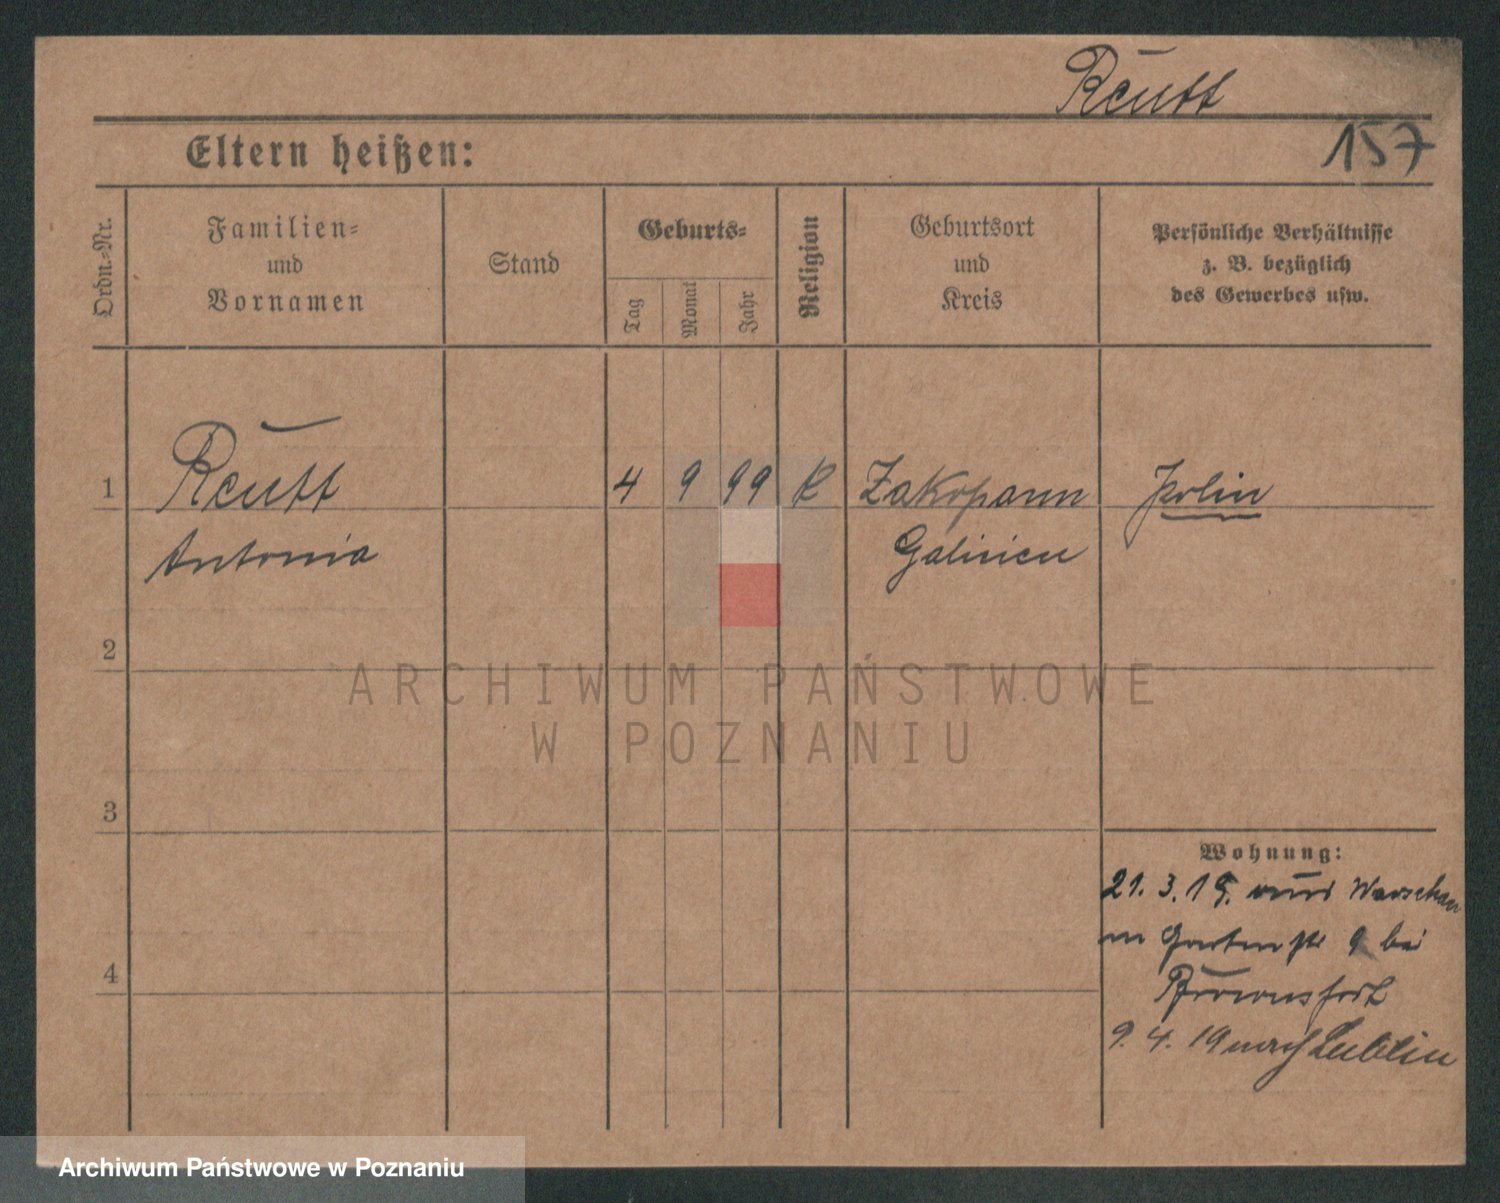 Reutt
157
Eltern heißen:
Ordn.-Nr.
Familien-
und
Vornamen
Stand
Geburts-
Tag
Monat
Jahr
Religion
Geburtsort
und
Kreis
Persönliche Verhältnisse
z. B. bezüglich
des Gewerbes usw.
1
Reutt
4 9 99 k
Zakopann
Polin
Antonia
Galizien
2
ARCHIWUM PAŃSTWOWE
W POZNANIU
3
Wohnung:
21. 3. 19. aus Warschau
Gartenstr 9 bei
4
9. 4. 19 nach Lublin
Archiwum Państwowe w Poznaniu